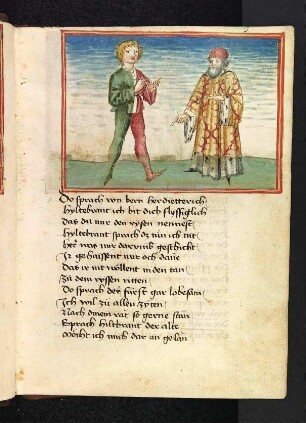 Do sprach von bern her dietterich
hyltebrant ich bit dich flyssiglich
Das du mir den rysen nemest
hyltebrant sprach dz tun ich nit
her was mir darumb geschicht
Ir gehaissent mir och daūe
Das ir nit wöllent in den tan
Zu dem ryssen ritten
Do sprach der fürst gar lobesan
Ich wil zu allen zytten
Nach dinem rat so gerne stan
Sprach hiltebrant der alte
Möcht ich mich dar an gelan